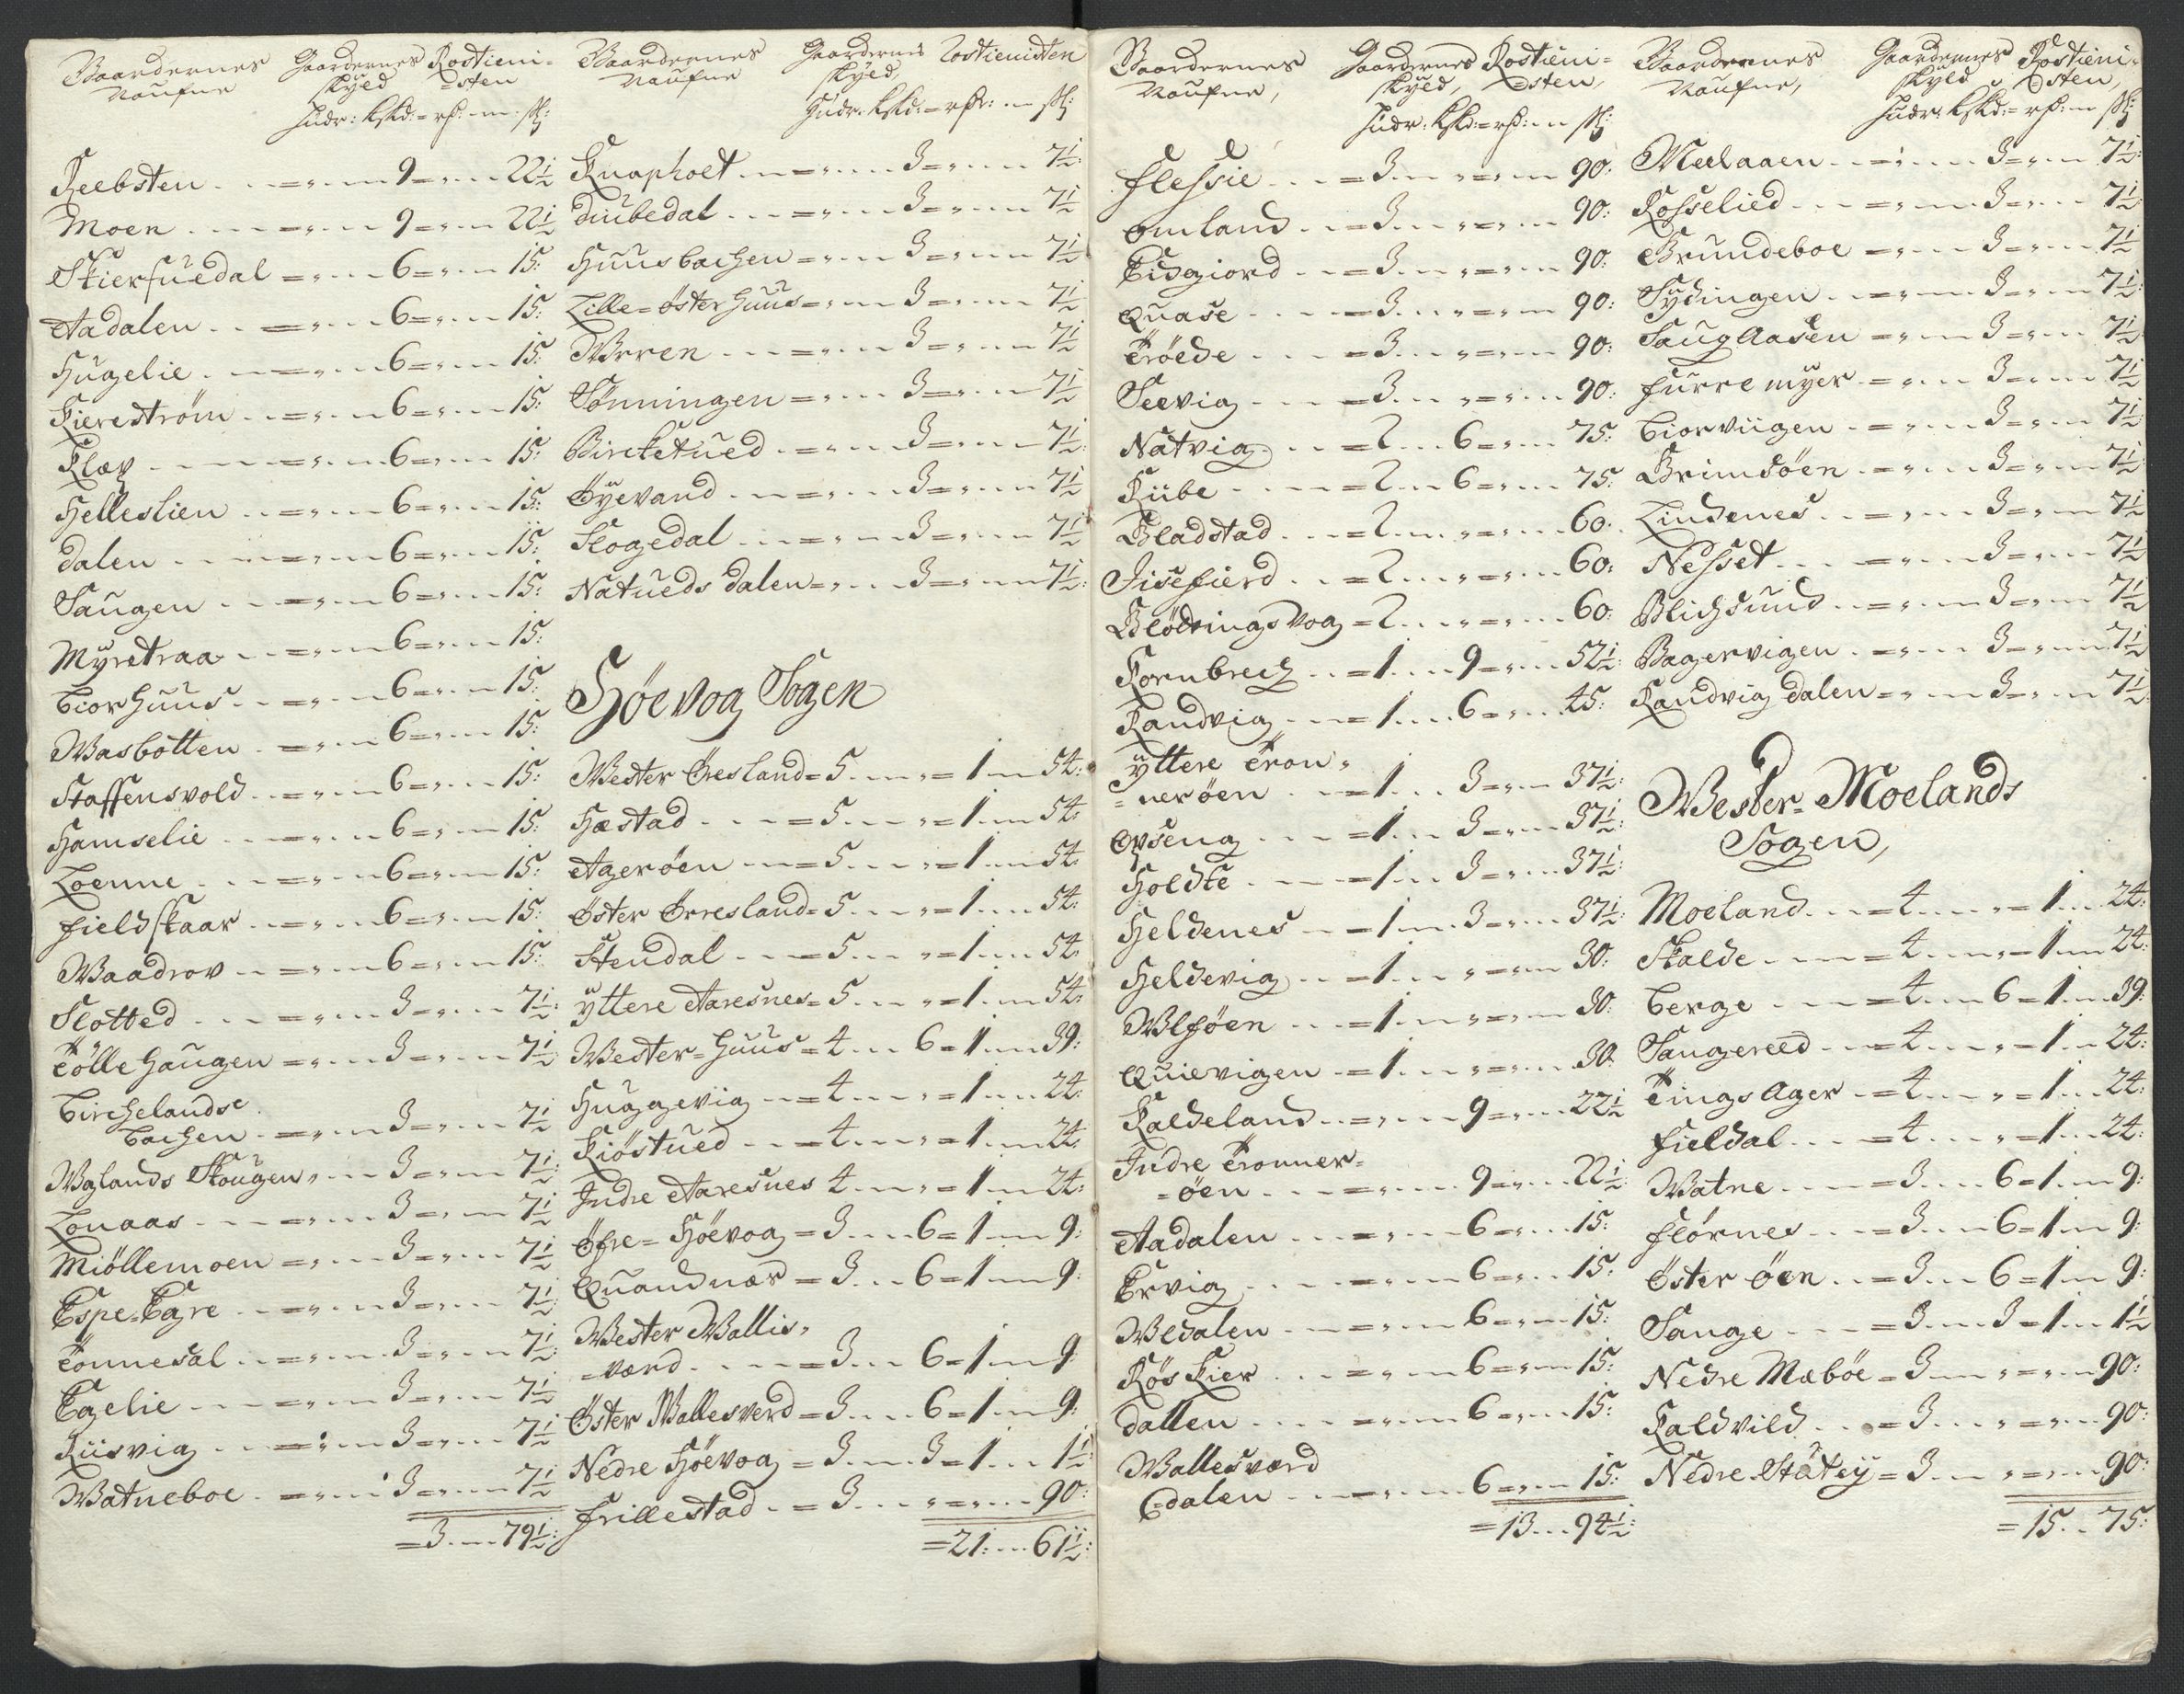 Gaardernes Naufne
Gaardernes skyld
Rostieni-
=sten
Hudr: ksld:=rd:-sk:
Reebsten - 9 - 22½
Moen - 9 - 22½
Skiersuedal - 6 - 15:
Aadalen - 6 - 15:
Hugelie - 6 - 15:
Kierestrøm - 6 - 15:
Klæp - 6 - 15:
Helleslien - 6 - 15:
dalen - 6 - 15:
Saugen - 6 - 15:
Myretraa - 6 - 15:
biorhuus - 6 - 15:
Wasbotten - 6 - 15:
Staffensvold - 6 - 15:
Hamselie - 6 - 15:
Loenne - 6 - 15:
fieldskaar - 6 - 15:
Waadrov - 6 - 15:
Slotted - 3 - 7½:
Tölle haugen - 3 - 7½
birchelands
bachen - 3 - 7½
Waglands Skougen - 3 - 7½:
Lonaas - 3 - 7½
Miöllemoen - 3 - 7½
Espe-Eagre - 3 - 7½
Tonnesal - 3 - 7½:
Egelie - 3 - 7½
Riisvig - 3 - 7½
Watneboe - 3 - 7½
=3 - 79½:
Gaardernes Naufne
Gaardernes skyld,
Rostienisten
Hudr: ksld:=rdr: - sk:
Knapholt - 3 - 7½:
diubedal - 3 - 7½
Huusbachen - 3 - 7½
Lille=østerhuus - 3 - 7½
Wrren - 3 - 7½
Sønningen - 3 - 7½
Birketued - 3 - 7½:
Øyevand - 3 - 7½
Slogedal - 3 - 7½
Natueds dalen - 3 - 7½:
Høevog Sogen
Wester Øresland=5 - 1 - 54:
Hæstad - 5 - 1 - 54:
Agerøen - 5 - 1 - 54:
Øster Ørresland=5 - 1 - 54:
Stendal - 5 - 1 - 54:
yttere Aaresnes=5 - 1 - 54:
Wester=huus=4 - 6=1 - 39:
Huggevig - 4 - 1 - 24:
Kiöstued - 4 - 1 - 24:
Indre Aaresnes 4 - 1 - 24:
Øfre=Høevog=3 - 6=1 - 9:
Quandnæs=3 - 6=1 - 9:
Wester Wallis,
=værd - 3 - 6=1 - 9
Øster Wallesverd=3 - 6=1 - 9:
Nedre Høevog=3 - 3=1 - 1½
frillestad - 3 - 90:
=21: - 61½:
Gaardernes Naufne,
Gaardernes skyld,
Rostieni=
=sten,
Hudr: ksld:=rd: - sk:
flessie - 3 - 90:
omland - 3 - 90:
Eidgiord - 3 - 90:
Quase - 3 - 90:
Trøede - 3 - 90:
Seevig - 3 - 90:
Natvig - 2 - 6 - 75:
Kube - 2 - 6 - 75:
Bladstad - 2 - 60:
Jisefierd - 2 - 60:
Blödingsvog=2 - 60:
Kornbrech - 1 - 9 - 52½:
Randvig - 1 - 6 - 45:
yttere Tron,
=nerøen - 1 - 3 - 37½:
Opseng - 1 - 3 - 37½:
Holdte - 1 - 3 - 37½:
Heldenes - 1 - 3 - 37½:
Heldevig - 1 - 30:
Wlføen - 1 - 30:
Quievigen - 1 - 30:
Kaldeland - 9 - 22½
Indre Tronner=
=øen - 9 - 22½:
Aadalen - 6 - 15:
Ervig - 6 - 15:
Wedalen - 6 - 15:
Røskier - 6 - 15:
dallen - 6 - 15:
Wallesværd
dalen - 6 - 15:
=13 - 94½:
Gaardernes Naufne,
Gaardernes skyld,
Rostieni-
=sten,
Hudr: ksld:=rd: - sk:
Meelaaen - 3 - 7½:
Rosselied - 3 - 7½:
Grundeboe - 3 - 7½
Sydingen - 3 - 7½:
Saug Aasen - 3 - 7½:
furremyer - 3 - 7½
biorviigen - 3 - 7½:
Grimsøen - 3 - 7½:
Lindenes - 3 - 7½
Nesset - 3 - 7½
Blichsund - 3 - 7½
Bagervigen - 3 - 7½:
Randvig dalen - 3 - 7½
Wester-Moelands
Sogen,
Moeland - 4 - 1 - 24:
Skalde - 4 - 1 - 24:
berge - 4 - 6=1 - 39:
Saugereed - 4 - 1 - 24:
Tings Ager - 4 - 1 - 24:
fieldal - 4 - 1 - 24:
Watne - 3 - 6=1 - 9:
flørnes - 3 - 6=1 - 9:
Øster øen - 3 - 6=1 - 9:
Sange - 3 - 3=1 - 1½
Nedre Mæbøe=3 - 90:
Kaldvild - 3 - 90:
Nedre Statey=3 - 90:
=15 - 75: